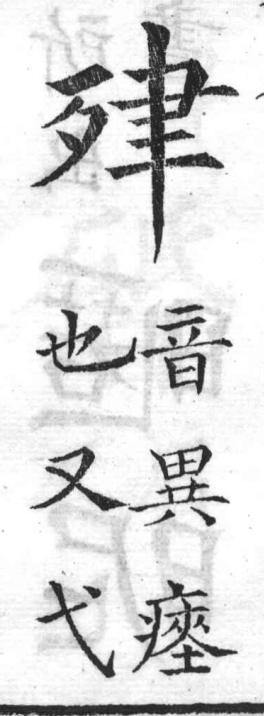 肂
音異瘞
也又弋